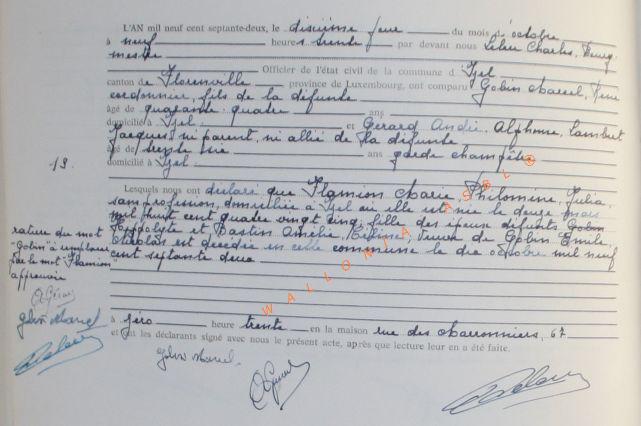 L'AN mil neuf cent septante-deux, le dixième jour du mois d'octobre
à neuf heures trente par devant nous Leleu Charles, Bourg-
mestre
Officier de l'état civil de la commune d'Izel
canton de Florenville province de Luxembourg, ont comparu Gobin Marcel, René
cordonnier, fils de la défunte
âgé de quarante quatre ans
domicilié à Izel et Gerard André, Alphonse, Lambert
Jacques, ni parent, ni allié de la défunte
âgé de trente six ans garde champêtre
19. domicilié à Izel
Lesquels nous ont déclaré que Flamion Marie, Philomine, Julia,
sans profession, domiciliée à Izel où elle est née le douze mars
mil huit cent quatre vingt cinq, fille des époux défunts Gobin
Hippolyte et Bastin Amélie, veuve de Gobin Emile,
Nicolas est décédée en cette commune le dix octobre mil neuf
cent septante deux
rature du mot
"Gobin" remplacé
par le mot "Flamion"
approuvée
Gobin Marcel
à zéro heure trente en la maison rue des Charronniers, 67
et ont les déclarants signé avec nous le présent acte, après que lecture leur en a été faite.
Gobin Marcel
WALLONIA ASBL ©